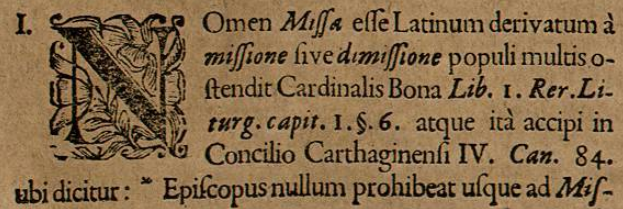 I. NOmen Miſſæ eſſe Latinum derivatum à
miſſione ſive dimiſſione populi multis o-
ſtendit Cardinalis Bona Lib. 1. Rer. Li-
turg. capit. 1. §. 6. atque ità accipi in
Concilio Carthaginenſi IV. Can. 84.
ubi dicitur: * Epiſcopus nullum prohibeat uſque ad Miſ-